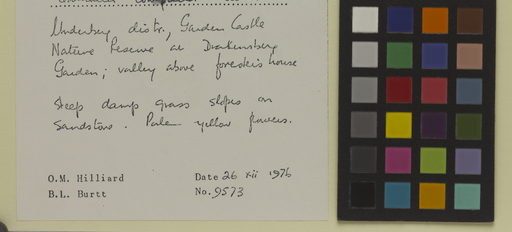 Underberg distr., Garden Castle
Nature Reserve at Drakensberg
Garden; valley above forester's house
Steep damp grass slopes on
sandstone. Pale yellow flowers.
O.M. Hilliard Date 26 xii 1976
B.L. Burtt No. 9573